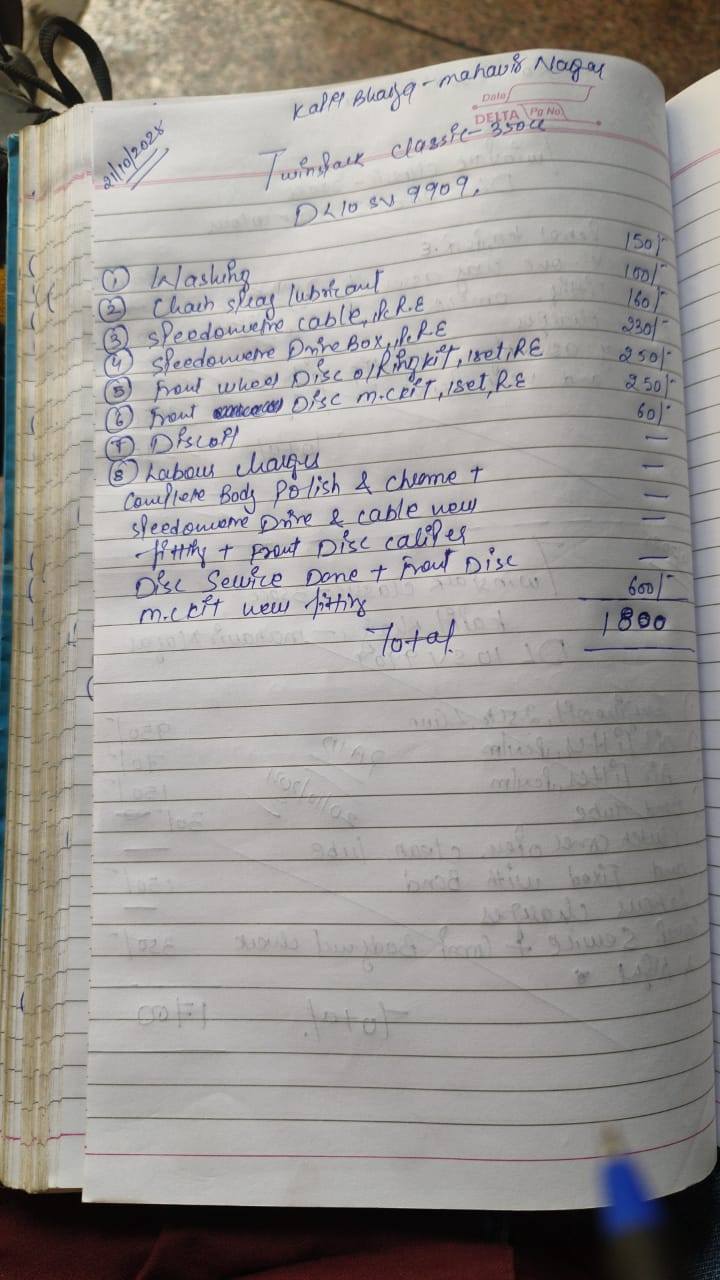 Kapil Bhaiya - mahavir Nagar
Date
DELTA Pg No.
21/10/2025
Twinspark Classic - 350cc
DL10 SV 9909,
① Washing 150/-
② Chain spray lubricant 100/-
③ speedometre cable, R.E 160/-
④ speedometre Drive Box, R.E 230/-
⑤ Front wheel Disc o/Ring kit, 1set, RE 250/-
⑥ Front Disc m.c kit, 1set, R.E 250/-
⑦ Disc oil 60/-
⑧ Labour charges —
Complete Body Polish & chrome + —
speedometre Drive & cable new —
fitting + Front Disc caliper —
Disc Service Done + Front Disc —
m.c kit new fitting 600/-
Total. 1800